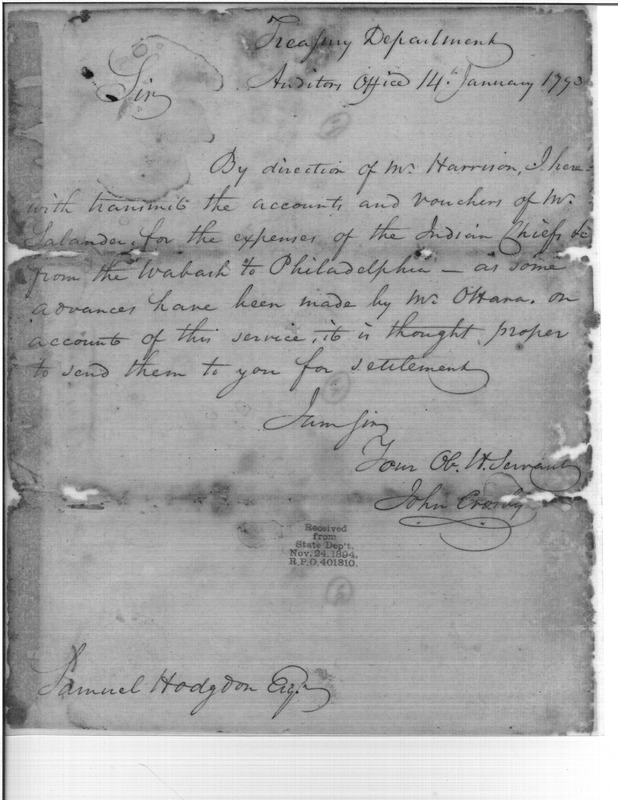 Treasury Department
Auditors Office 14th January 1793
Sir
By direction of Mr. Harrison, I here-
with transmit the accounts and vouchers of Mr.
for the expenses of the Indian Chiefs &c
from the Wabash to Philadelphia — as some
advances have been made by Mr. OHara. on
account of this service, it is thought proper
to send them to you for settlement
I am Sir
Your Ob. H. Servant
John
Received
from
State Dep't.
Nov. 24. 1894.
R.P.O. 401810.
Samuel Hodgdon Esqr.